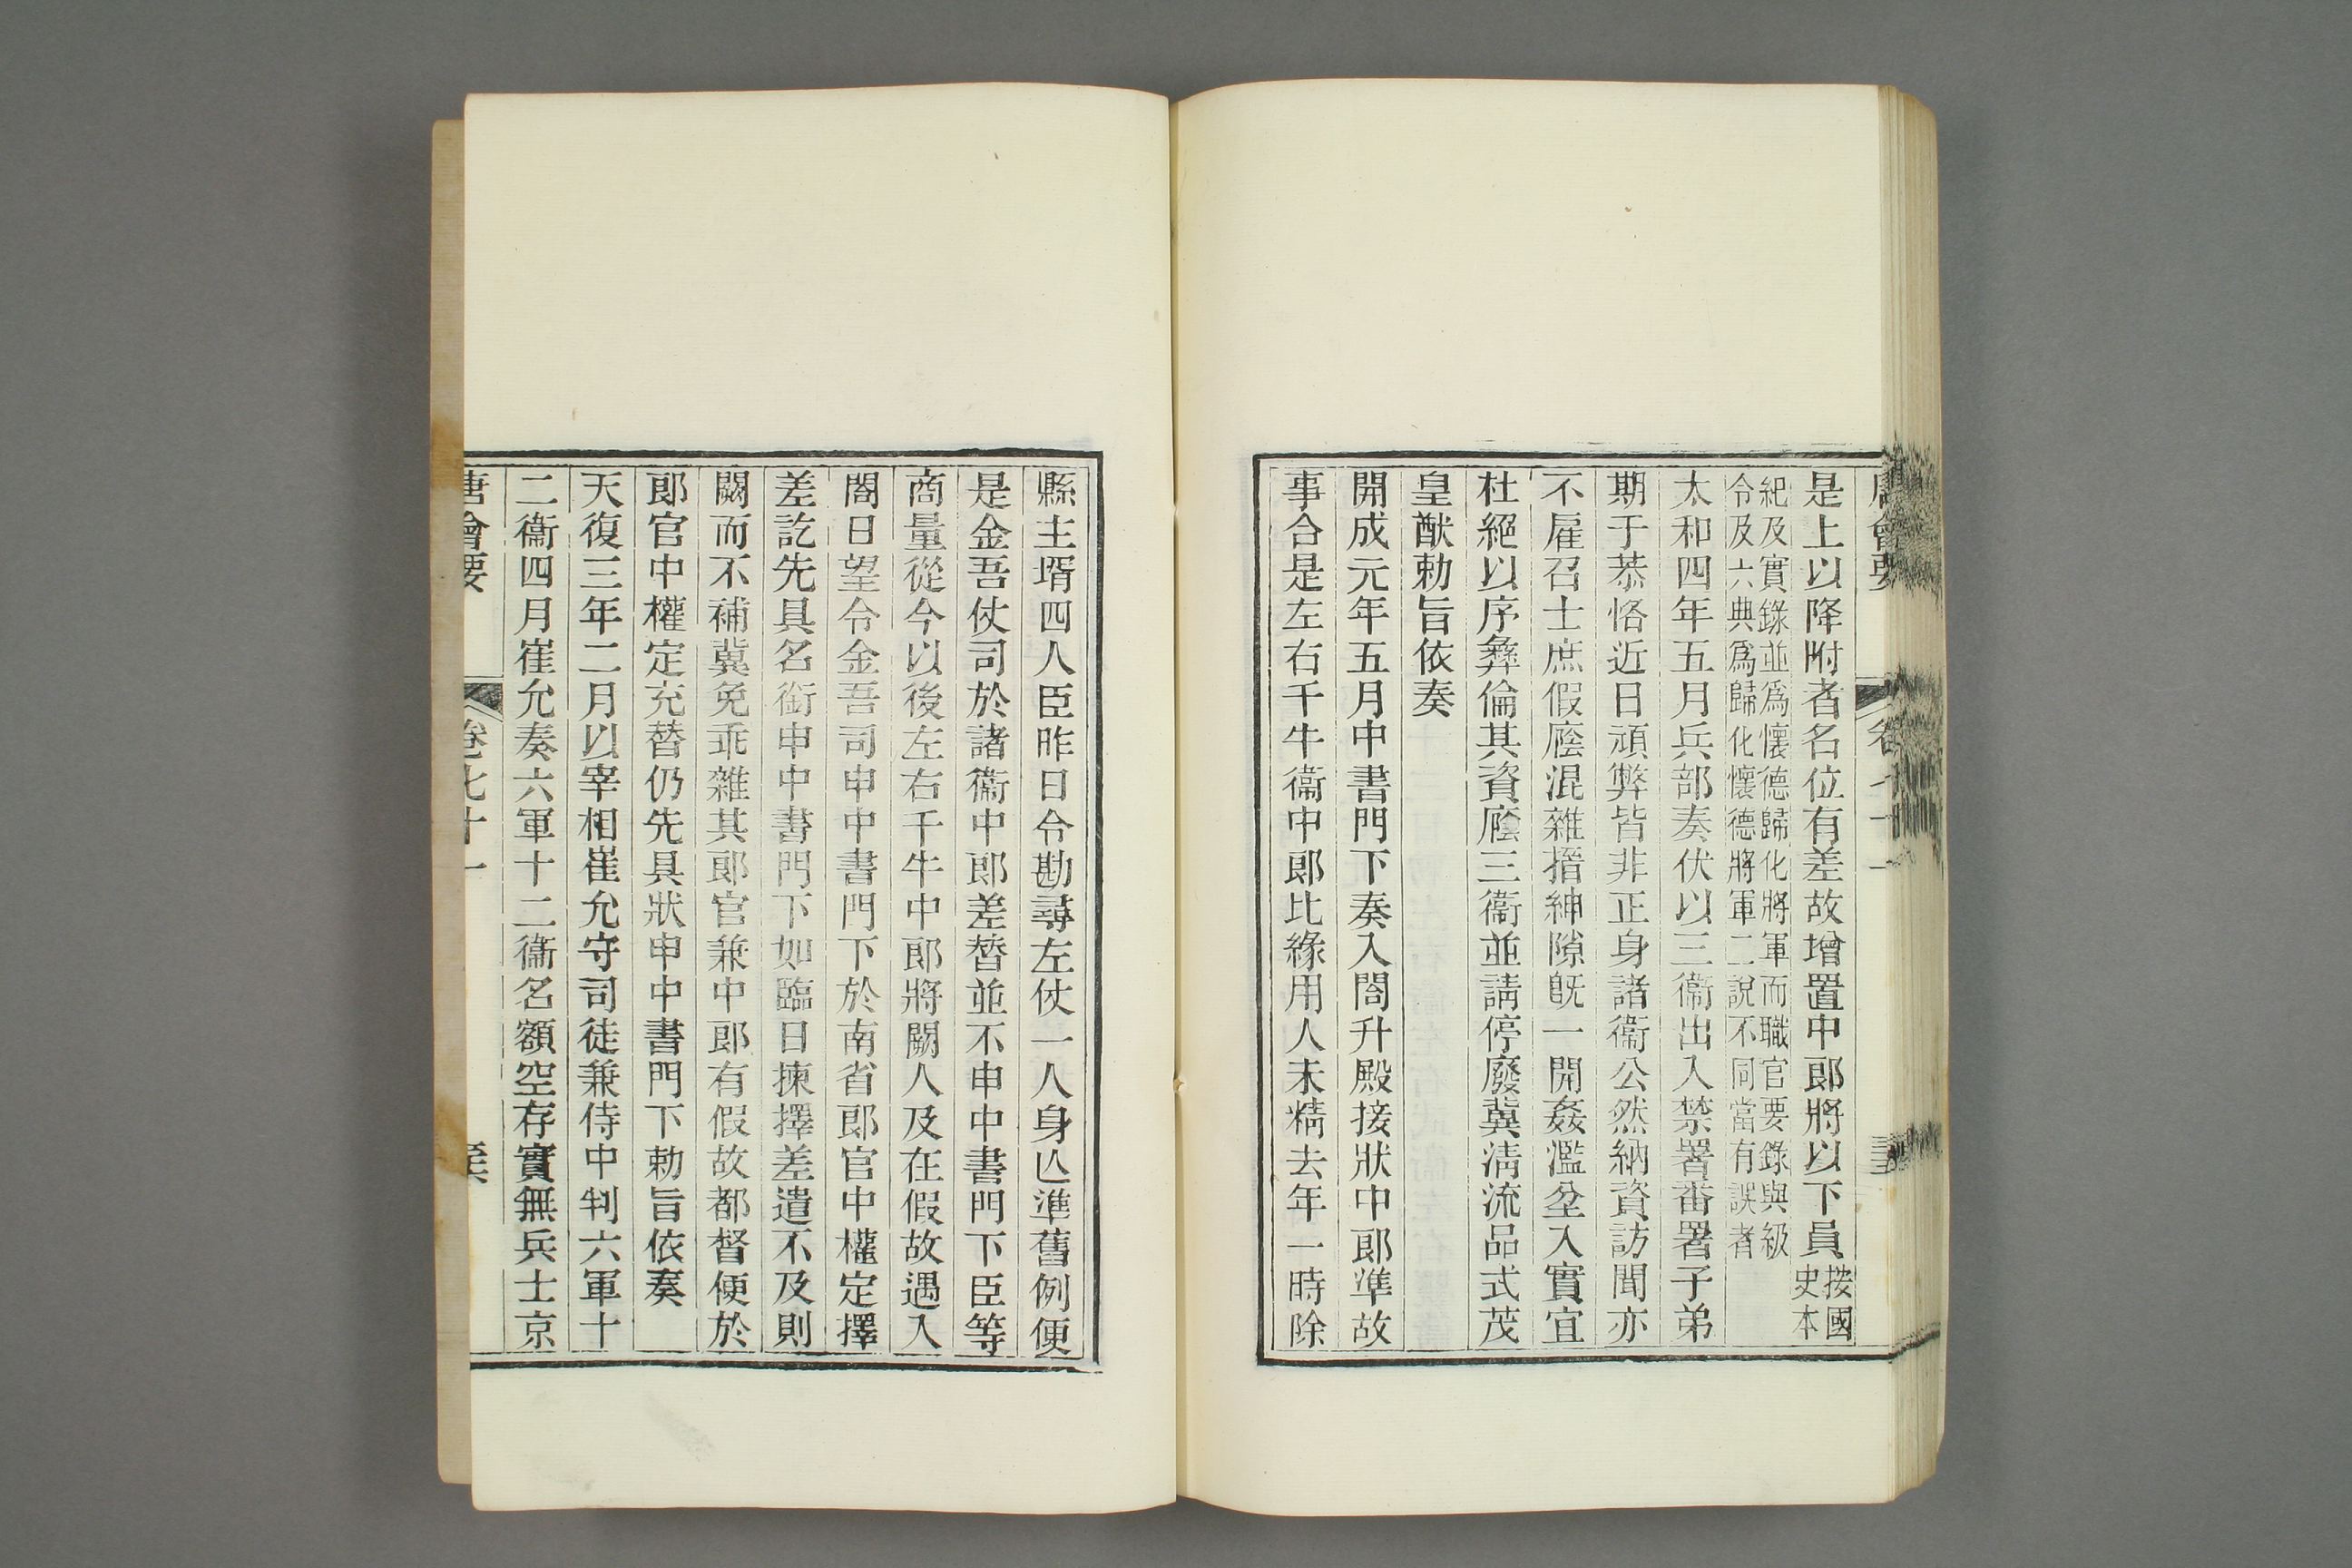 唐會要 卷七十一
是上以降附者名位有差故增置中郎將以下員按國史本
紀及實錄並爲懷德歸化將軍而職官要錄與級
令及六典爲歸化懷德將軍二說不同當有誤者
太和四年五月兵部奏伏以三衞出入禁署番署子弟
期于恭恪近日頑弊皆非正身諸衞公然納資訪聞亦
不雇召士庶假廕混雜搢紳隙旣一開姦濫坌入實宜
杜絕以序彝倫其資廕三衞並請停廢冀淸流品式茂
皇猷勅旨依奏
開成元年五月中書門下奏入閤升殿接狀中郎準故
事合是左右千牛衞中郎比緣用人未精去年一時除
縣主壻四人臣昨日令勘尋左仗一人身亾準舊例便
是金吾仗司於諸衞中郎差替並不申中書門下臣等
商量從今以後左右千牛中郎將闕人及在假故遇入
閤日望令金吾司申中書門下於南省郎官中權定擇
差訖先具名銜申中書門下如臨日揀擇差遣不及則
闕而不補冀免乖雜其郎官兼中郎有假故都督便於
郎官中權定充替仍先具狀申中書門下勅旨依奏
天復三年二月以宰相崔允守司徒兼侍中判六軍十
二衞四月崔允奏六軍十二衞名額空存實無兵士京
唐會要 卷七十一